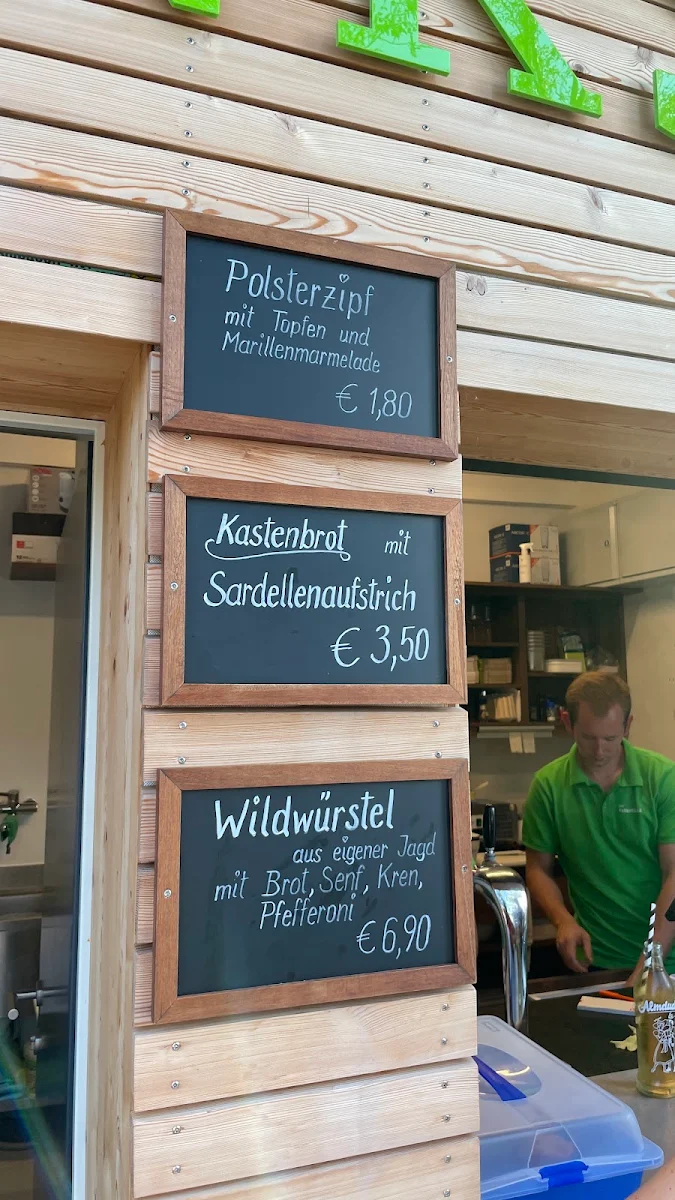 Polsterzipf
mit Topfen und
Marillenmarmelade
€ 1,80
Kastenbrot mit
Sardellenaufstrich
€ 3,50
Wildwürstel
aus eigener Jagd
mit Brot, Senf, Kren,
Pfefferoni
€ 6,90